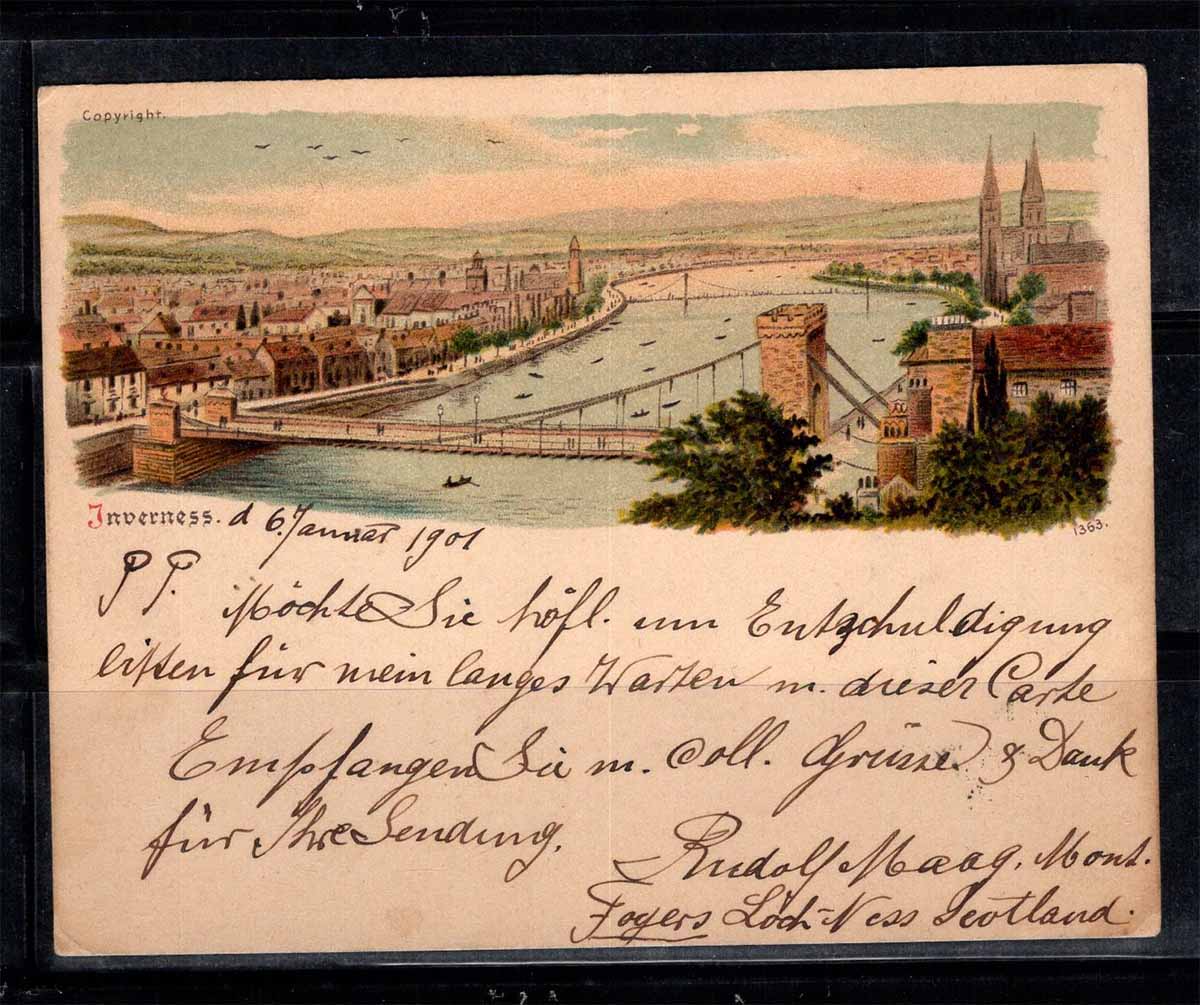 Copyright.
Inverness. d 6. Januar 1901
1363.
P P. Möchte Sie höfl. um Entzchuldigung
bitten für mein langes Warten m. dieser Carte
Empfangen Sie m. coll. Grüsse & Dank
für Ihre Sendung.
Rudolf Maag, Mont.
Foyers Loch-Ness Scotland.